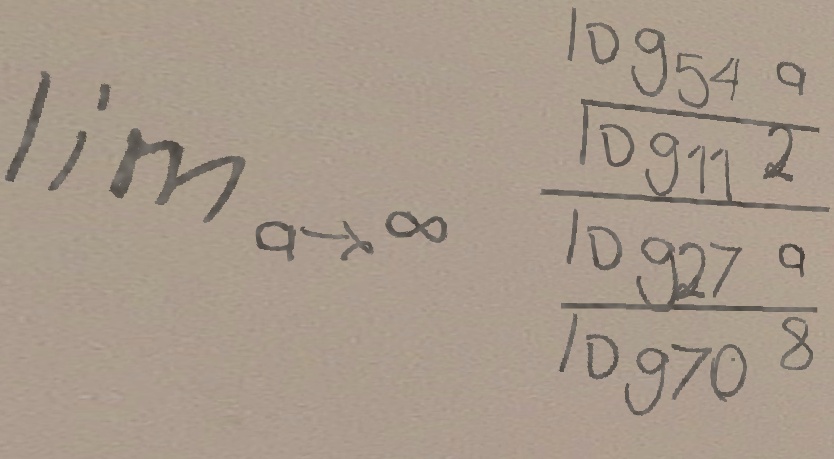 \lim_{a \to \infty} \frac{\frac{\log_{54} a}{\log_{11} 2}}{\frac{\log_{27} a}{\log_{70} 8}}